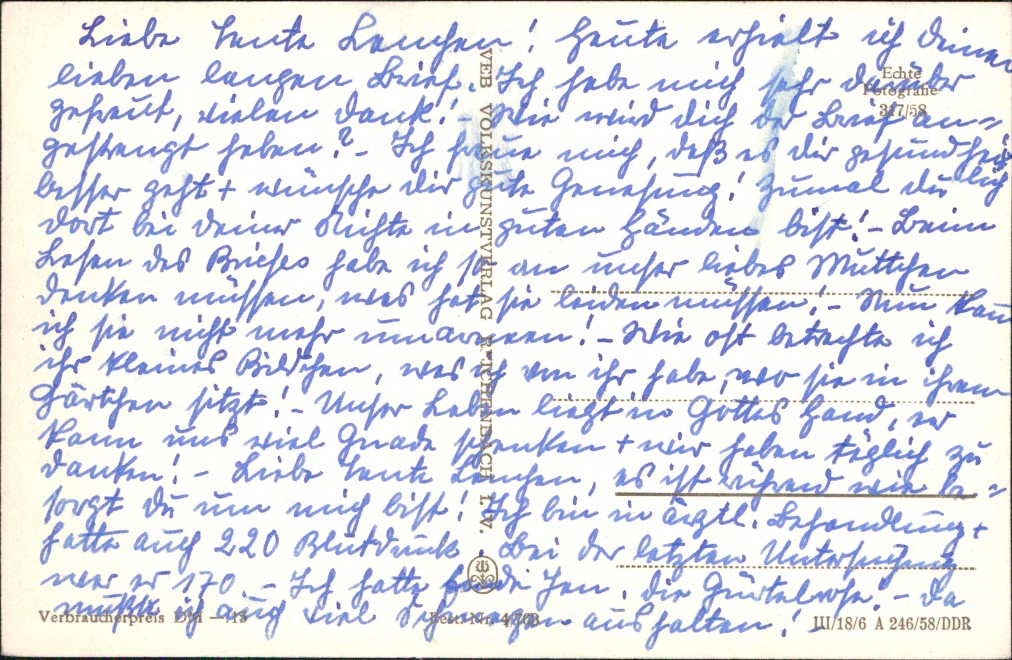 Liebe Tante Lenchen! Heute erhielt ich deinen
lieben langen Brief. Ich habe mich sehr darüber
gefreut, vielen Dank! - Wie wird dich der Brief an-
gestrengt haben? - Ich freue mich, daß es dir gesundheitlich
besser geht + wünsche dir gute Genesung! Zumal du
dort bei deiner Nichte in guten Händen bist! - Beim
Lesen des Briefes habe ich so an unser liebes Muttchen
denken müssen, was hat sie leiden müssen! - Nun kann
ich sie nicht mehr umarmen! - Wie oft betrachte ich
ihr kleines Bildchen, was ich von ihr habe, wo sie in ihrem
Gärtchen sitzt! - Unser Leben liegt in Gottes Hand, er
kann uns viel Gnade schenken + wir haben täglich zu
danken! - Liebe Tante Lenchen, es ist rührend wie be-
sorgt du um mich bist! Ich bin in ärztl. Behandlung +
hatte auch 220 Blutdruck. Bei der letzten Untersuchung
war er 170 - Ich hatte Ende Jan. die Gürtelrose. - Da
mußte ich auch viel Schmerzen aushalten! -
Echte
Fotografie
317/58
VEB VOLKSKUNSTVERLAG REICHENBACH I. V.
Verbraucherpreis DM -.15
Best.-Nr.
III/18/6 A 246/58/DDR